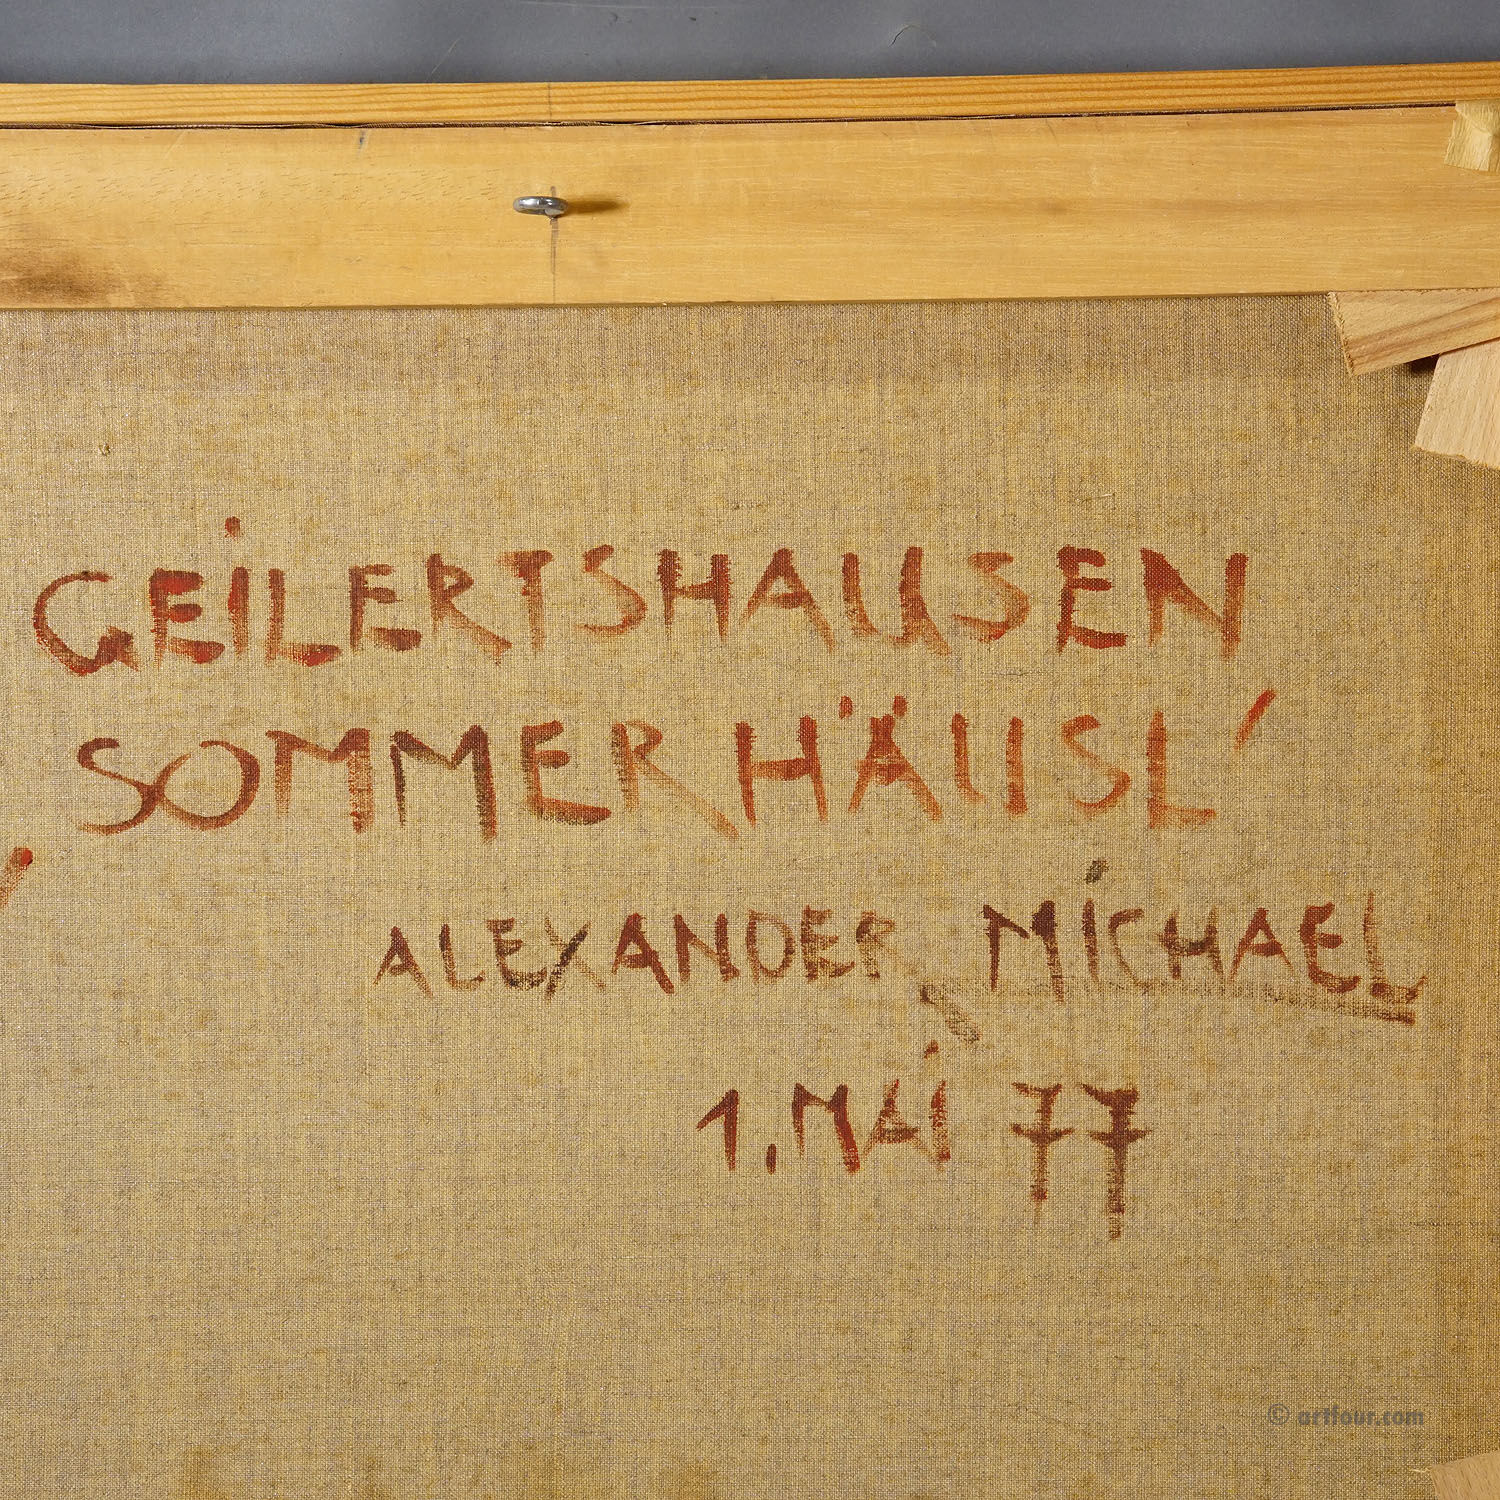 GEILERTSHAUSEN
SOMMERHÄUSL'
ALEXANDER MICHAEL
1. MAI 77
© artfour.com